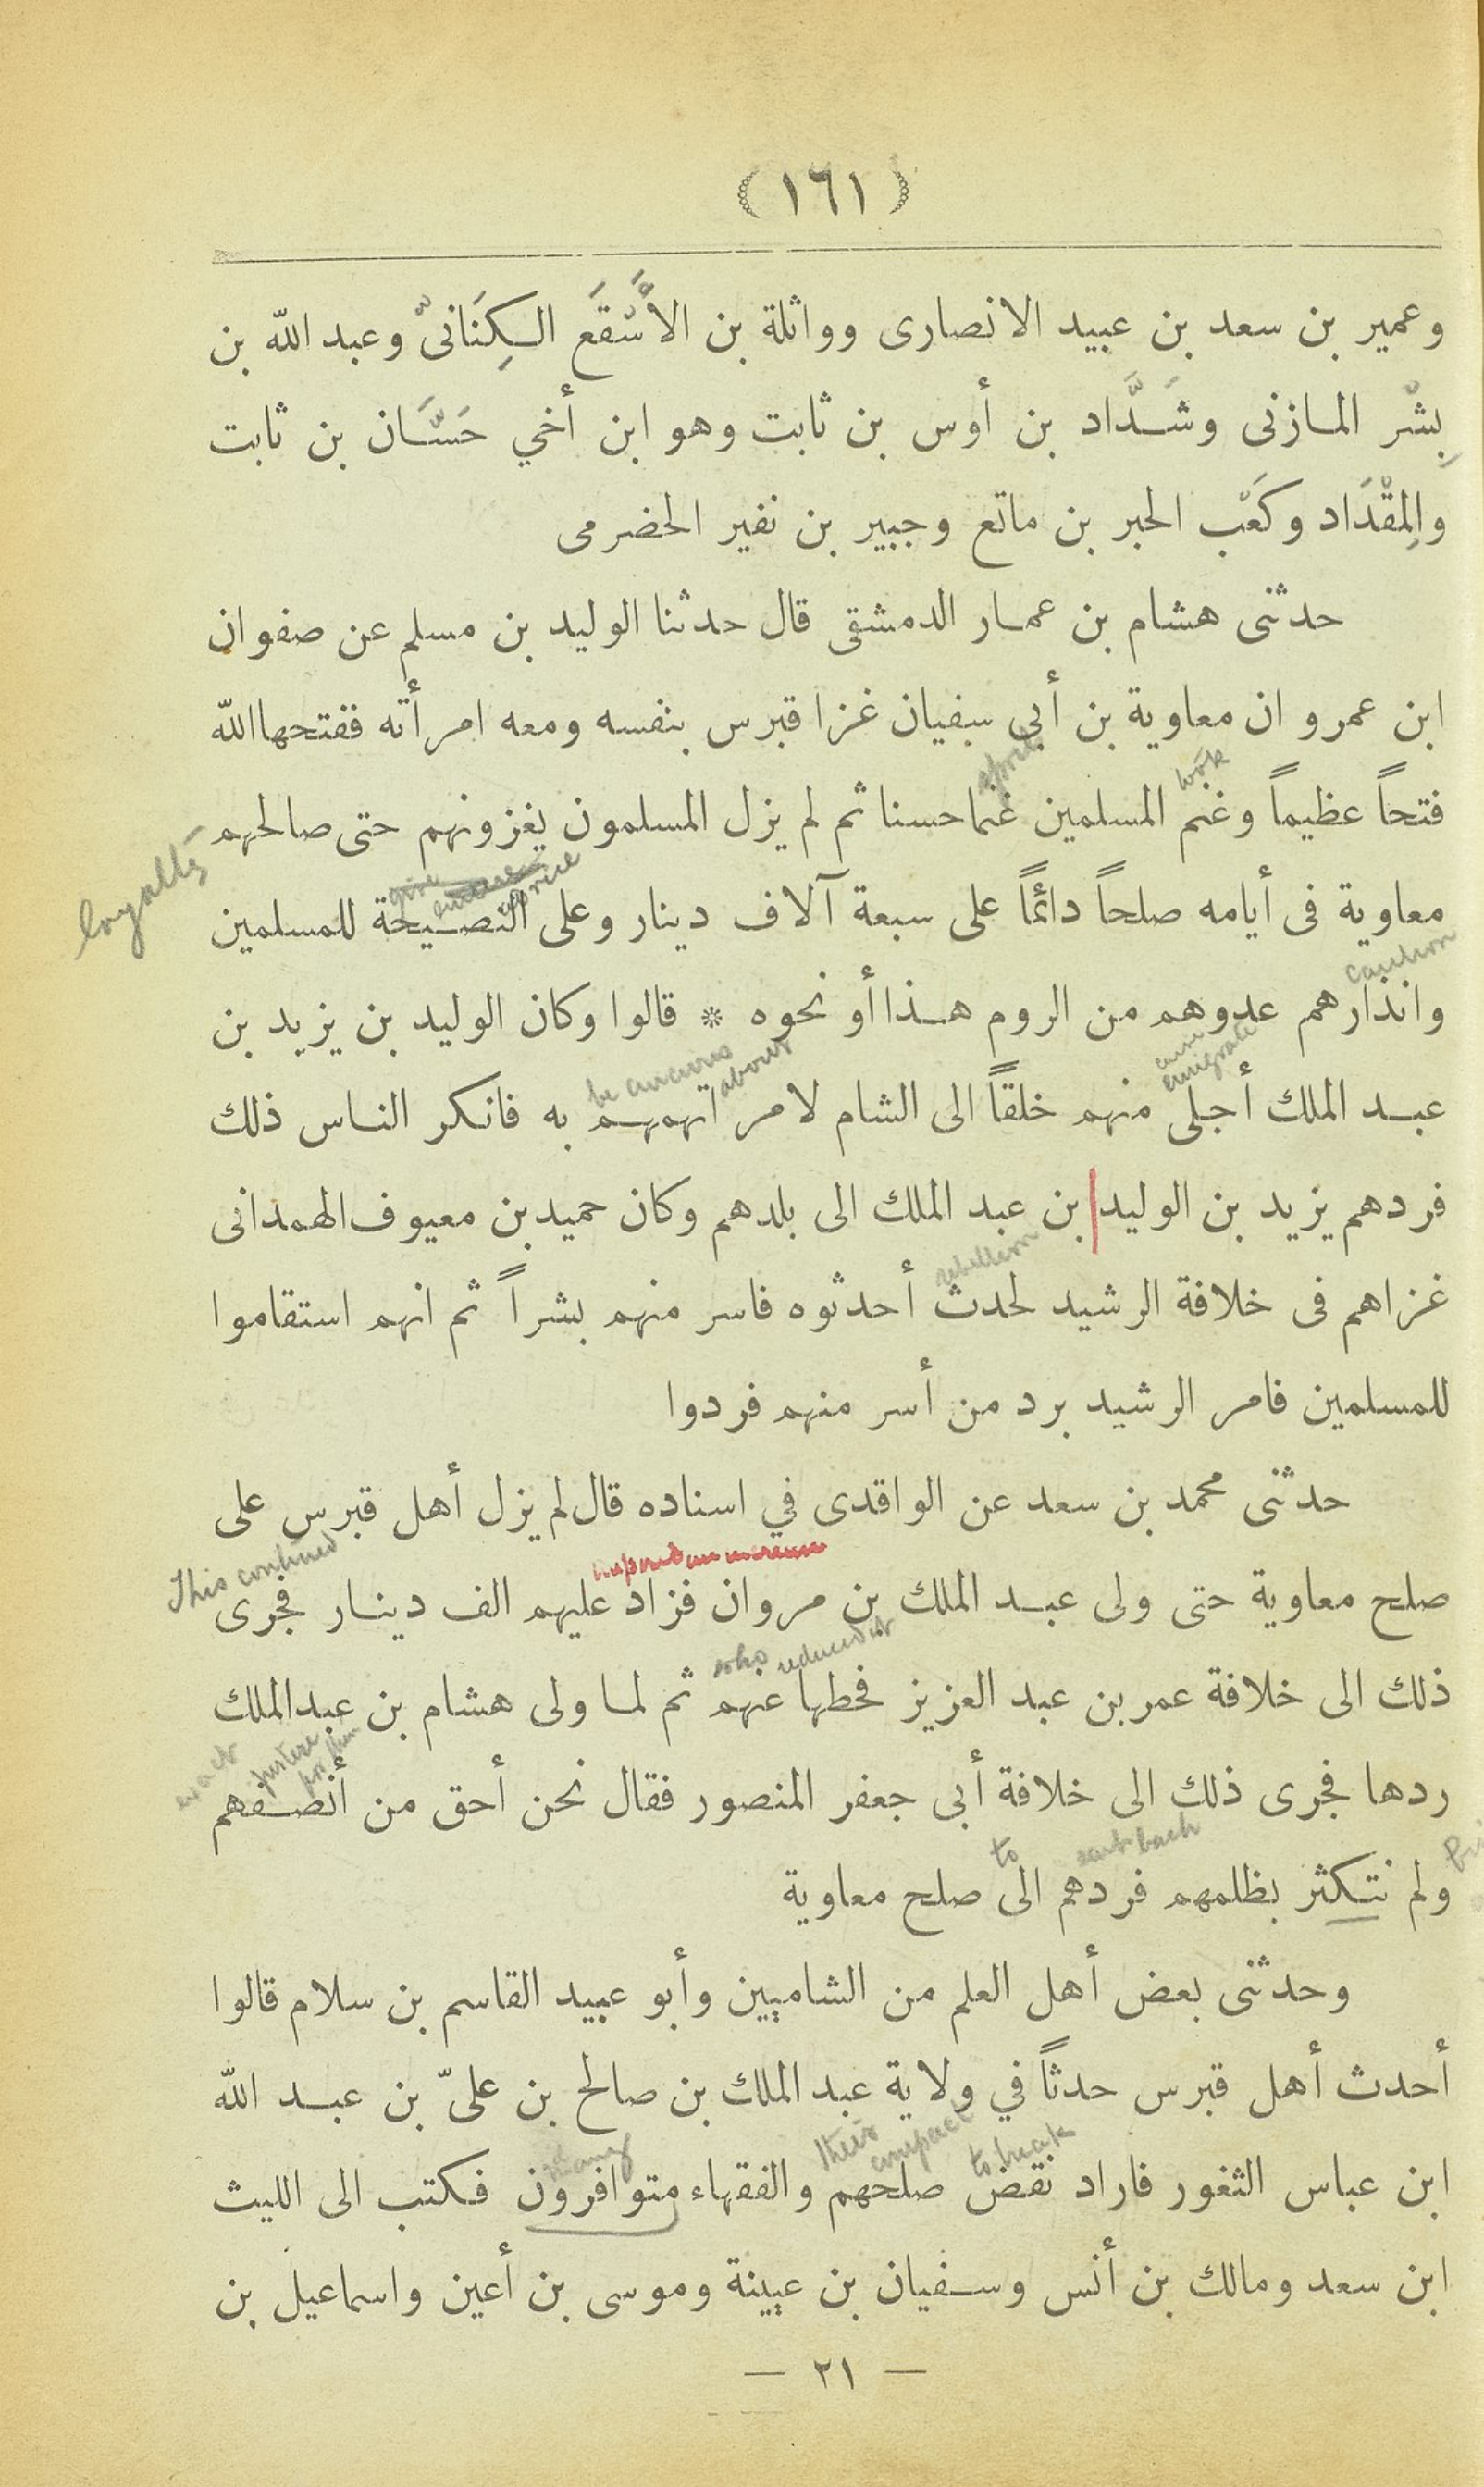 (١٦١)
وعمير بن سعد بن عبيد الانصارى وواثلة بن الأَسْقَع الكِنَانىّ وعبد الله بن
بِشْر المازنى وشَدَّاد بن أوس بن ثابت وهو ابن أخي حَسَّان بن ثابت
والمِقْدَاد وكَعْب الحبر بن ماتع وجبير بن نفير الحضرمى
حدثنى هشام بن عمار الدمشقى قال حدثنا الوليد بن مسلم عن صفوان
ابن عمرو ان معاوية بن أبى سفيان غزا قبرس بنفسه ومعه امرأته ففتحها الله
took
فتحاً عظيماً وغنم المسلمين غنما حسنا ثم لم يزل المسلمون يغزونهم حتى صالحهم
loyalty
give advice
معاوية فى أيامه صلحاً دائمًا على سبعة آلاف دينار وعلى النصيحة للمسلمين
caution
وانذارهم عدوهم من الروم هذا أو نحوه * قالوا وكان الوليد بن يزيد بن
emigrate
about
عبد الملك أجلى منهم خلقاً الى الشام لامر اتهمهم به فانكر الناس ذلك
فردهم يزيد بن الوليد بن عبد الملك الى بلدهم وكان حميد بن معيوف الهمدانى
rebellion
غزاهم فى خلافة الرشيد لحدث أحدثوه فاسر منهم بشراً ثم انهم استقاموا
للمسلمين فامر الرشيد برد من أسر منهم فردوا
حدثنى محمد بن سعد عن الواقدى في اسناده قال لم يزل أهل قبرس على
This continued
صلح معاوية حتى ولى عبد الملك بن مروان فزاد عليهم الف دينار فجرى
who reduced it
ذلك الى خلافة عمر بن عبد العزيز فحطها عنهم ثم لما ولى هشام بن عبد الملك
exact justice for them
ردها فجرى ذلك الى خلافة أبى جعفر المنصور فقال نحن أحق من أنصفهم
to sent back
ولم نتكثر بظلمهم فردهم الى صلح معاوية
وحدثنى بعض أهل العلم من الشاميين وأبو عبيد القاسم بن سلام قالوا
أحدث أهل قبرس حدثاً في ولاية عبد الملك بن صالح بن علىّ بن عبد الله
to break
their compact
many
ابن عباس الثغور فاراد نقض صلحهم والفقهاء متوافرون فكتب الى الليث
ابن سعد ومالك بن أنس وسفيان بن عيينة وموسى بن أعين واسماعيل بن
— ٢١ —